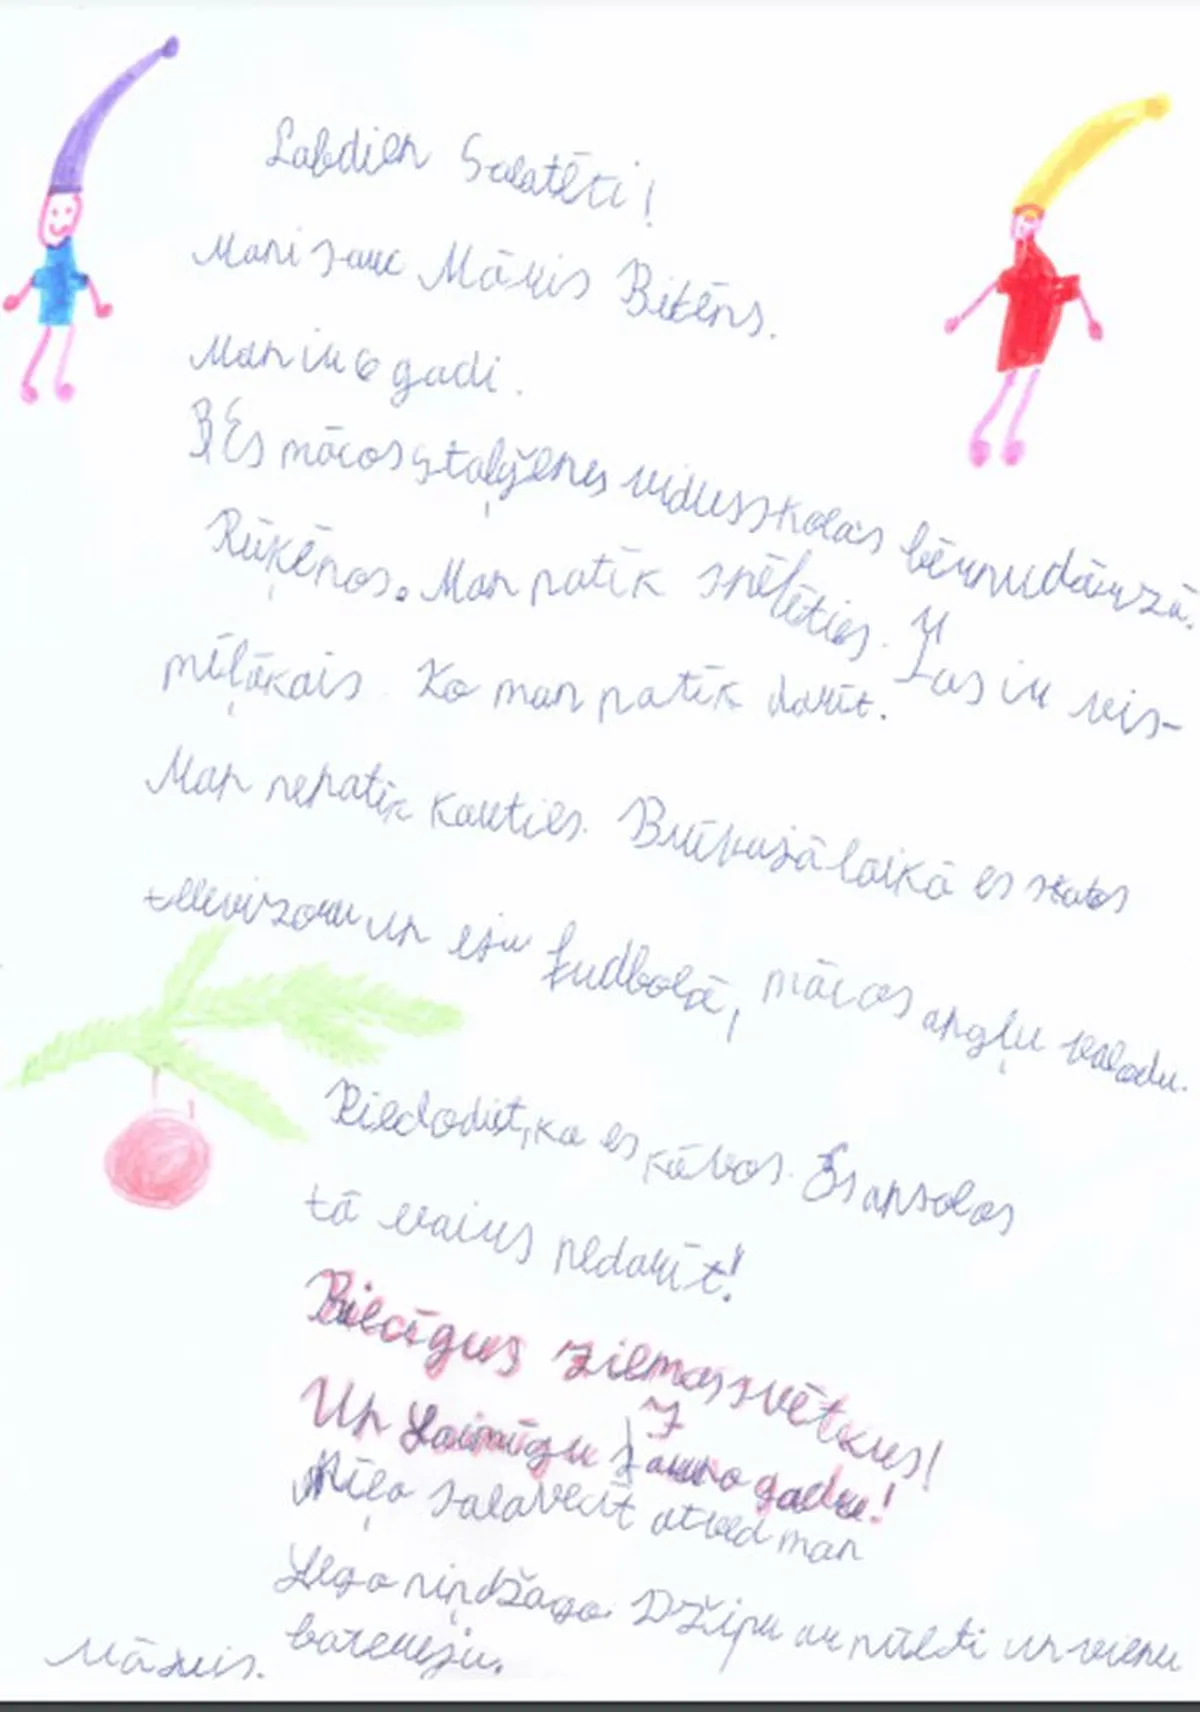 Labdien Salatēti!
Mani sauc Māris Bitēns.
Man ir 6 gadi.
Es mācos stalģenes vidusskolas bērnudārzā.
Rūķēnos. Man patīk spēlēties. Tas ir vis-
mīļākais. Ko man patīk darīt.
Man nepatīk kauties. Brīvajā laikā es skatos
televizoru un eju fudbolā, mācos angļu valodu.
Piedodiet, ka es kāvos. Es apsolos
tā vairs nedarīt!
Priecīgus ziemassvētkus!
Un Laimīgu Jauno gadu!
Mīļo salavecīt atved man
Lego niņdžago. Džipu ar pūlti un vienu
batereju.
Māris.